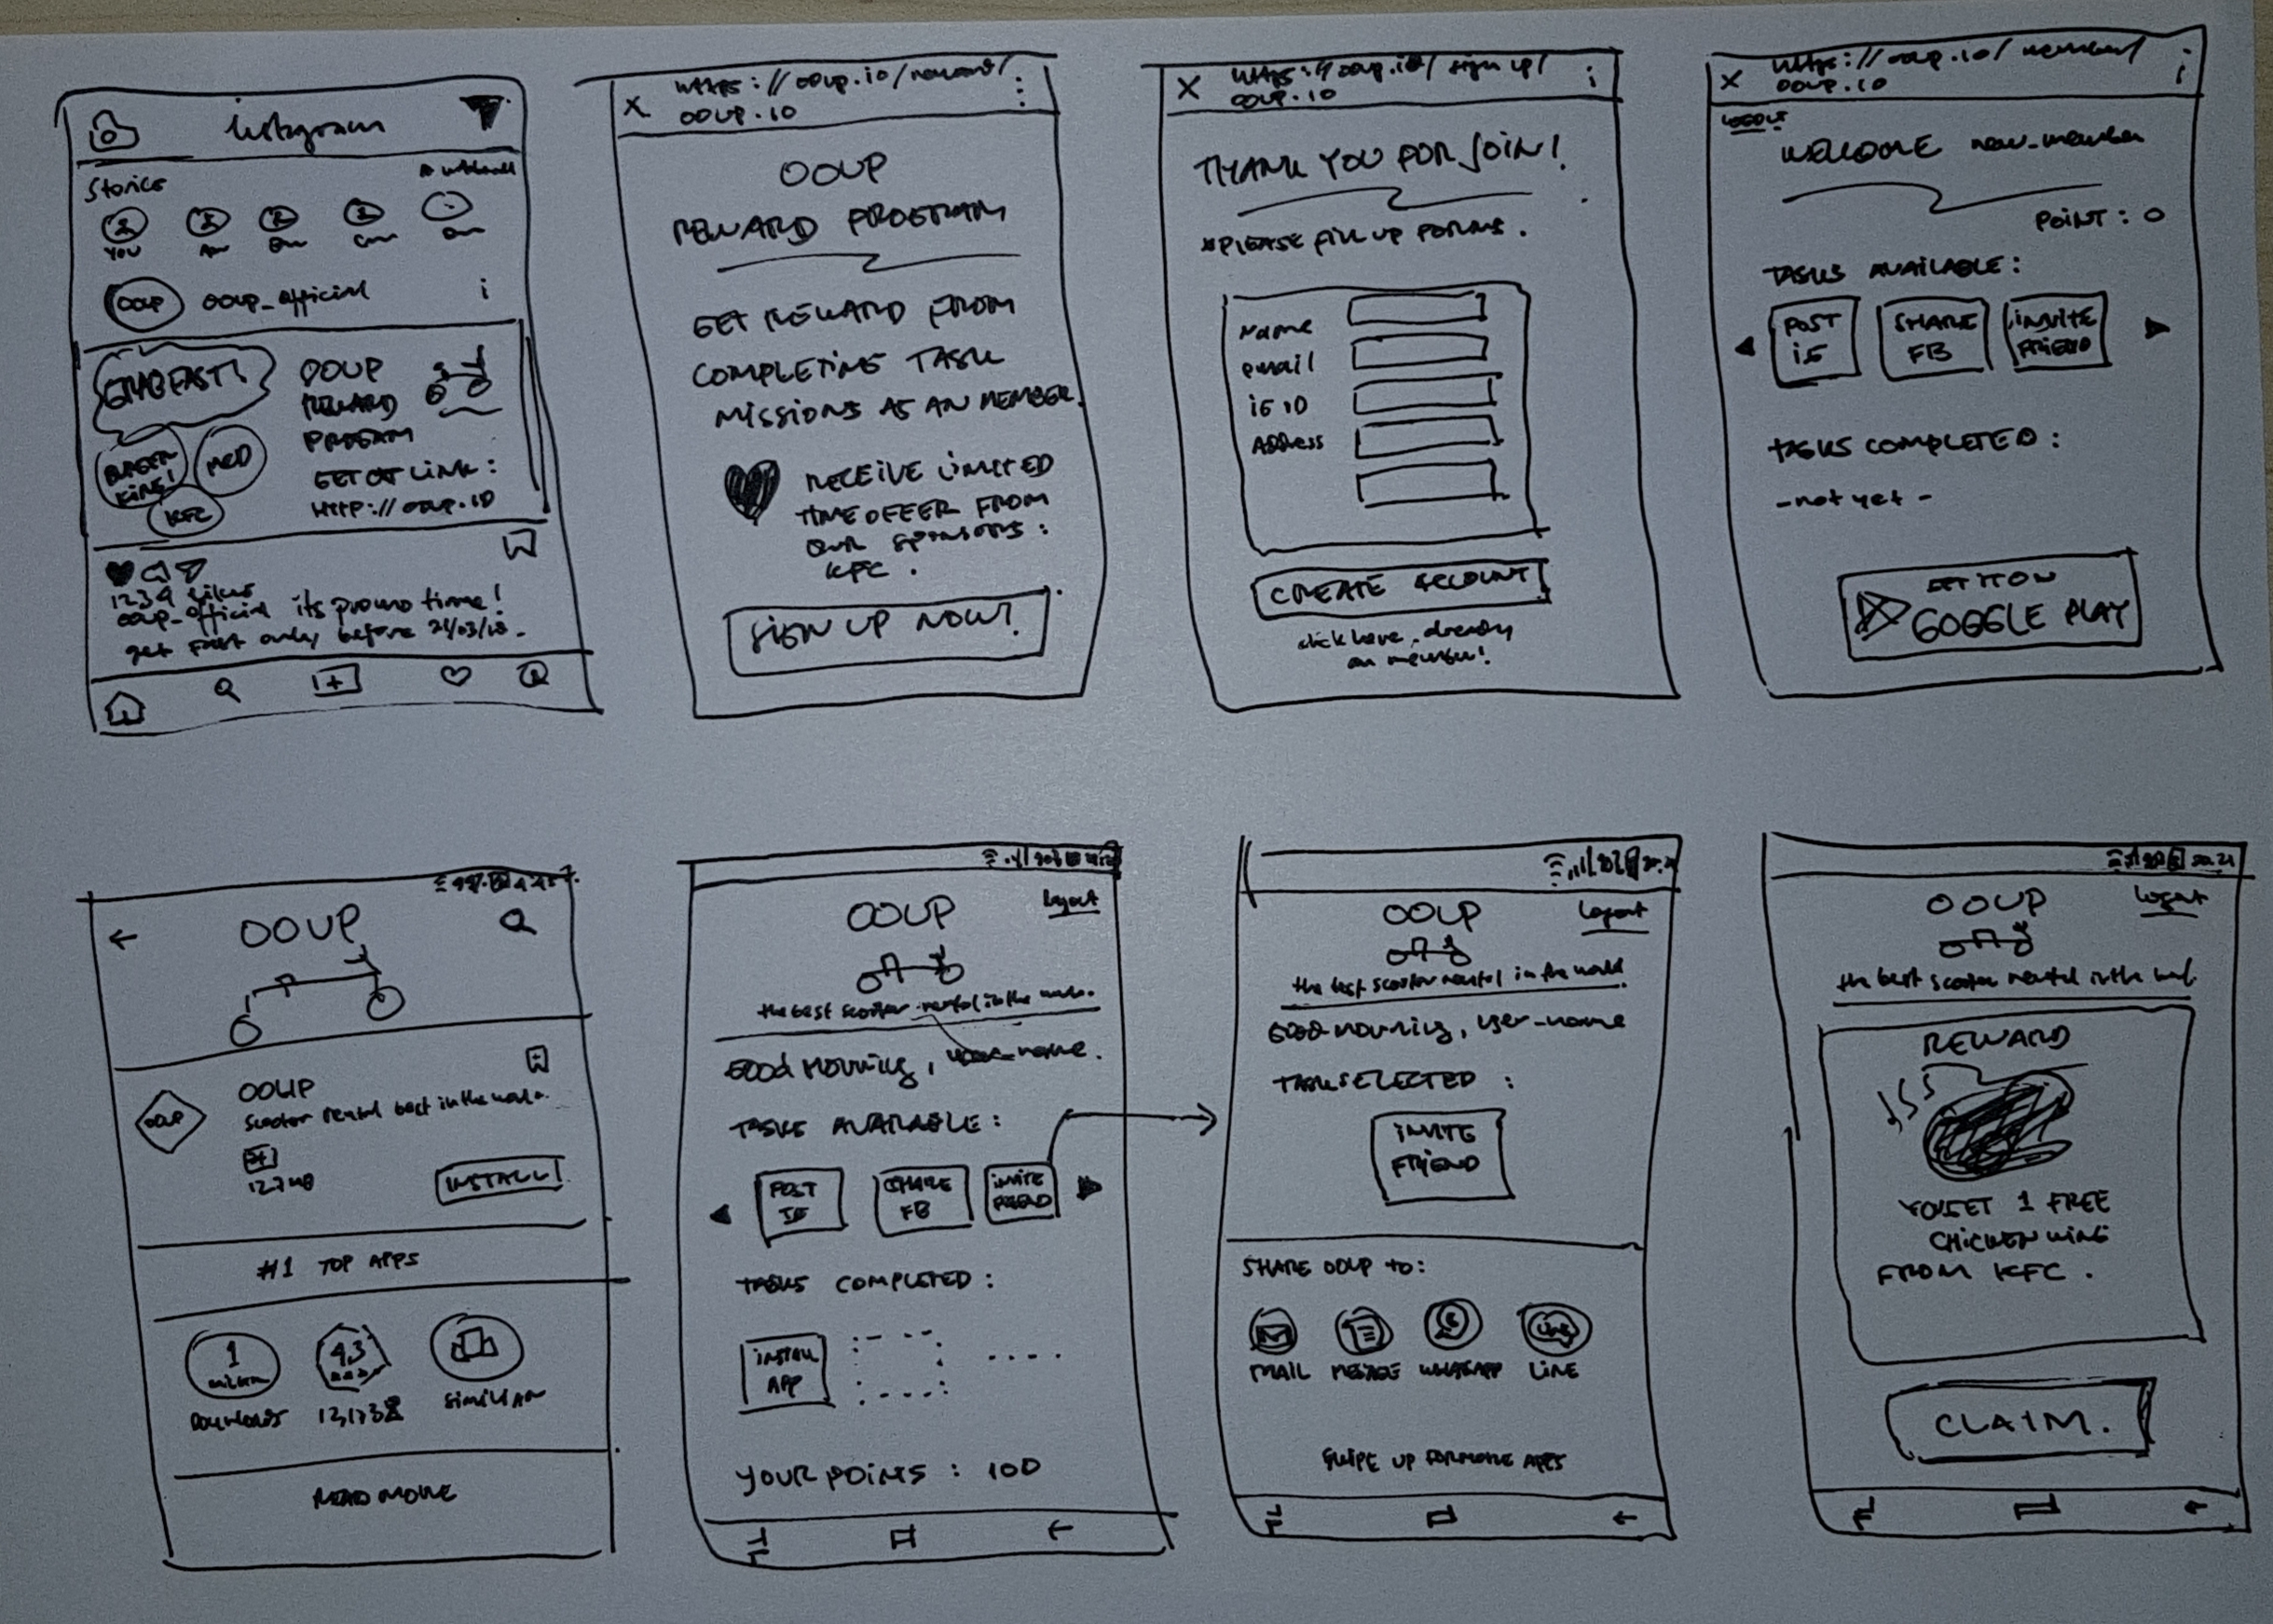 Instagram
Stories
YOU
OOUP
OOUP_official
GRAB FAST!
BURGER
KING!
MCD
KFC
OOUP
REWARD
PROGRAM
GET AT LINK:
HTTP://OOUP.IO
1234 likes
OOUP_official its promo time!
get fast only before 21/03/18
https://ooup.io/reward/
OOUP.IO
OOUP
REWARD PROGRAM
GET REWARD FROM
COMPLETING TASK
MISSIONS AS AN MEMBER.
RECEIVE LIMITED
TIME OFFER FROM
OUR SPONSORS:
KFC.
SIGN UP NOW!
https://ooup.io/sign up/
OOUP.IO
THANK YOU FOR JOIN!
*PLEASE FILL UP FORMS.
Name
email
IG ID
Address
CREATE ACCOUNT
click here, already
an member!
https://ooup.io/member/
OOUP.IO
LOGOUT
WELCOME new_member
POINT: 0
TASKS AVAILABLE:
POST
IG
SHARE
FB
INVITE
FRIEND
TASKS COMPLETED:
-not yet-
GET IT ON
GOOGLE PLAY
OOUP
OOUP
OOUP
Scooter rental best in the world.
INSTALL
#1 TOP APPS
1
million
Downloads
4.3
SIMILIAR
READ MORE
OOUP
logout
the best scooter rental in the world.
Good Morning, user_name.
TASKS AVAILABLE:
POST
IG
SHARE
FB
INVITE
FRIEND
TASKS COMPLETED:
INSTALL
APP
YOUR POINTS: 100
OOUP
logout
the best scooter rental in the world.
Good Morning, user_name
TASK SELECTED:
INVITE
FRIEND
SHARE OOUP to:
MAIL
MESSAGE
WHATSAPP
LINE
SWIPE UP FOR MORE APPS
20.21
OOUP
logout
the best scooter rental in the
REWARD
YOU GET 1 FREE
CHICKEN WING
FROM KFC.
CLAIM.